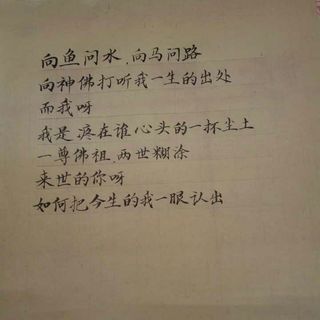 向鱼问水,向马问路
向神佛打听我一生的出处
而我呀
我是疼在谁心头的一抔尘土
一尊佛祖,两世糊涂
来世的你呀
如何把今生的我一眼认出